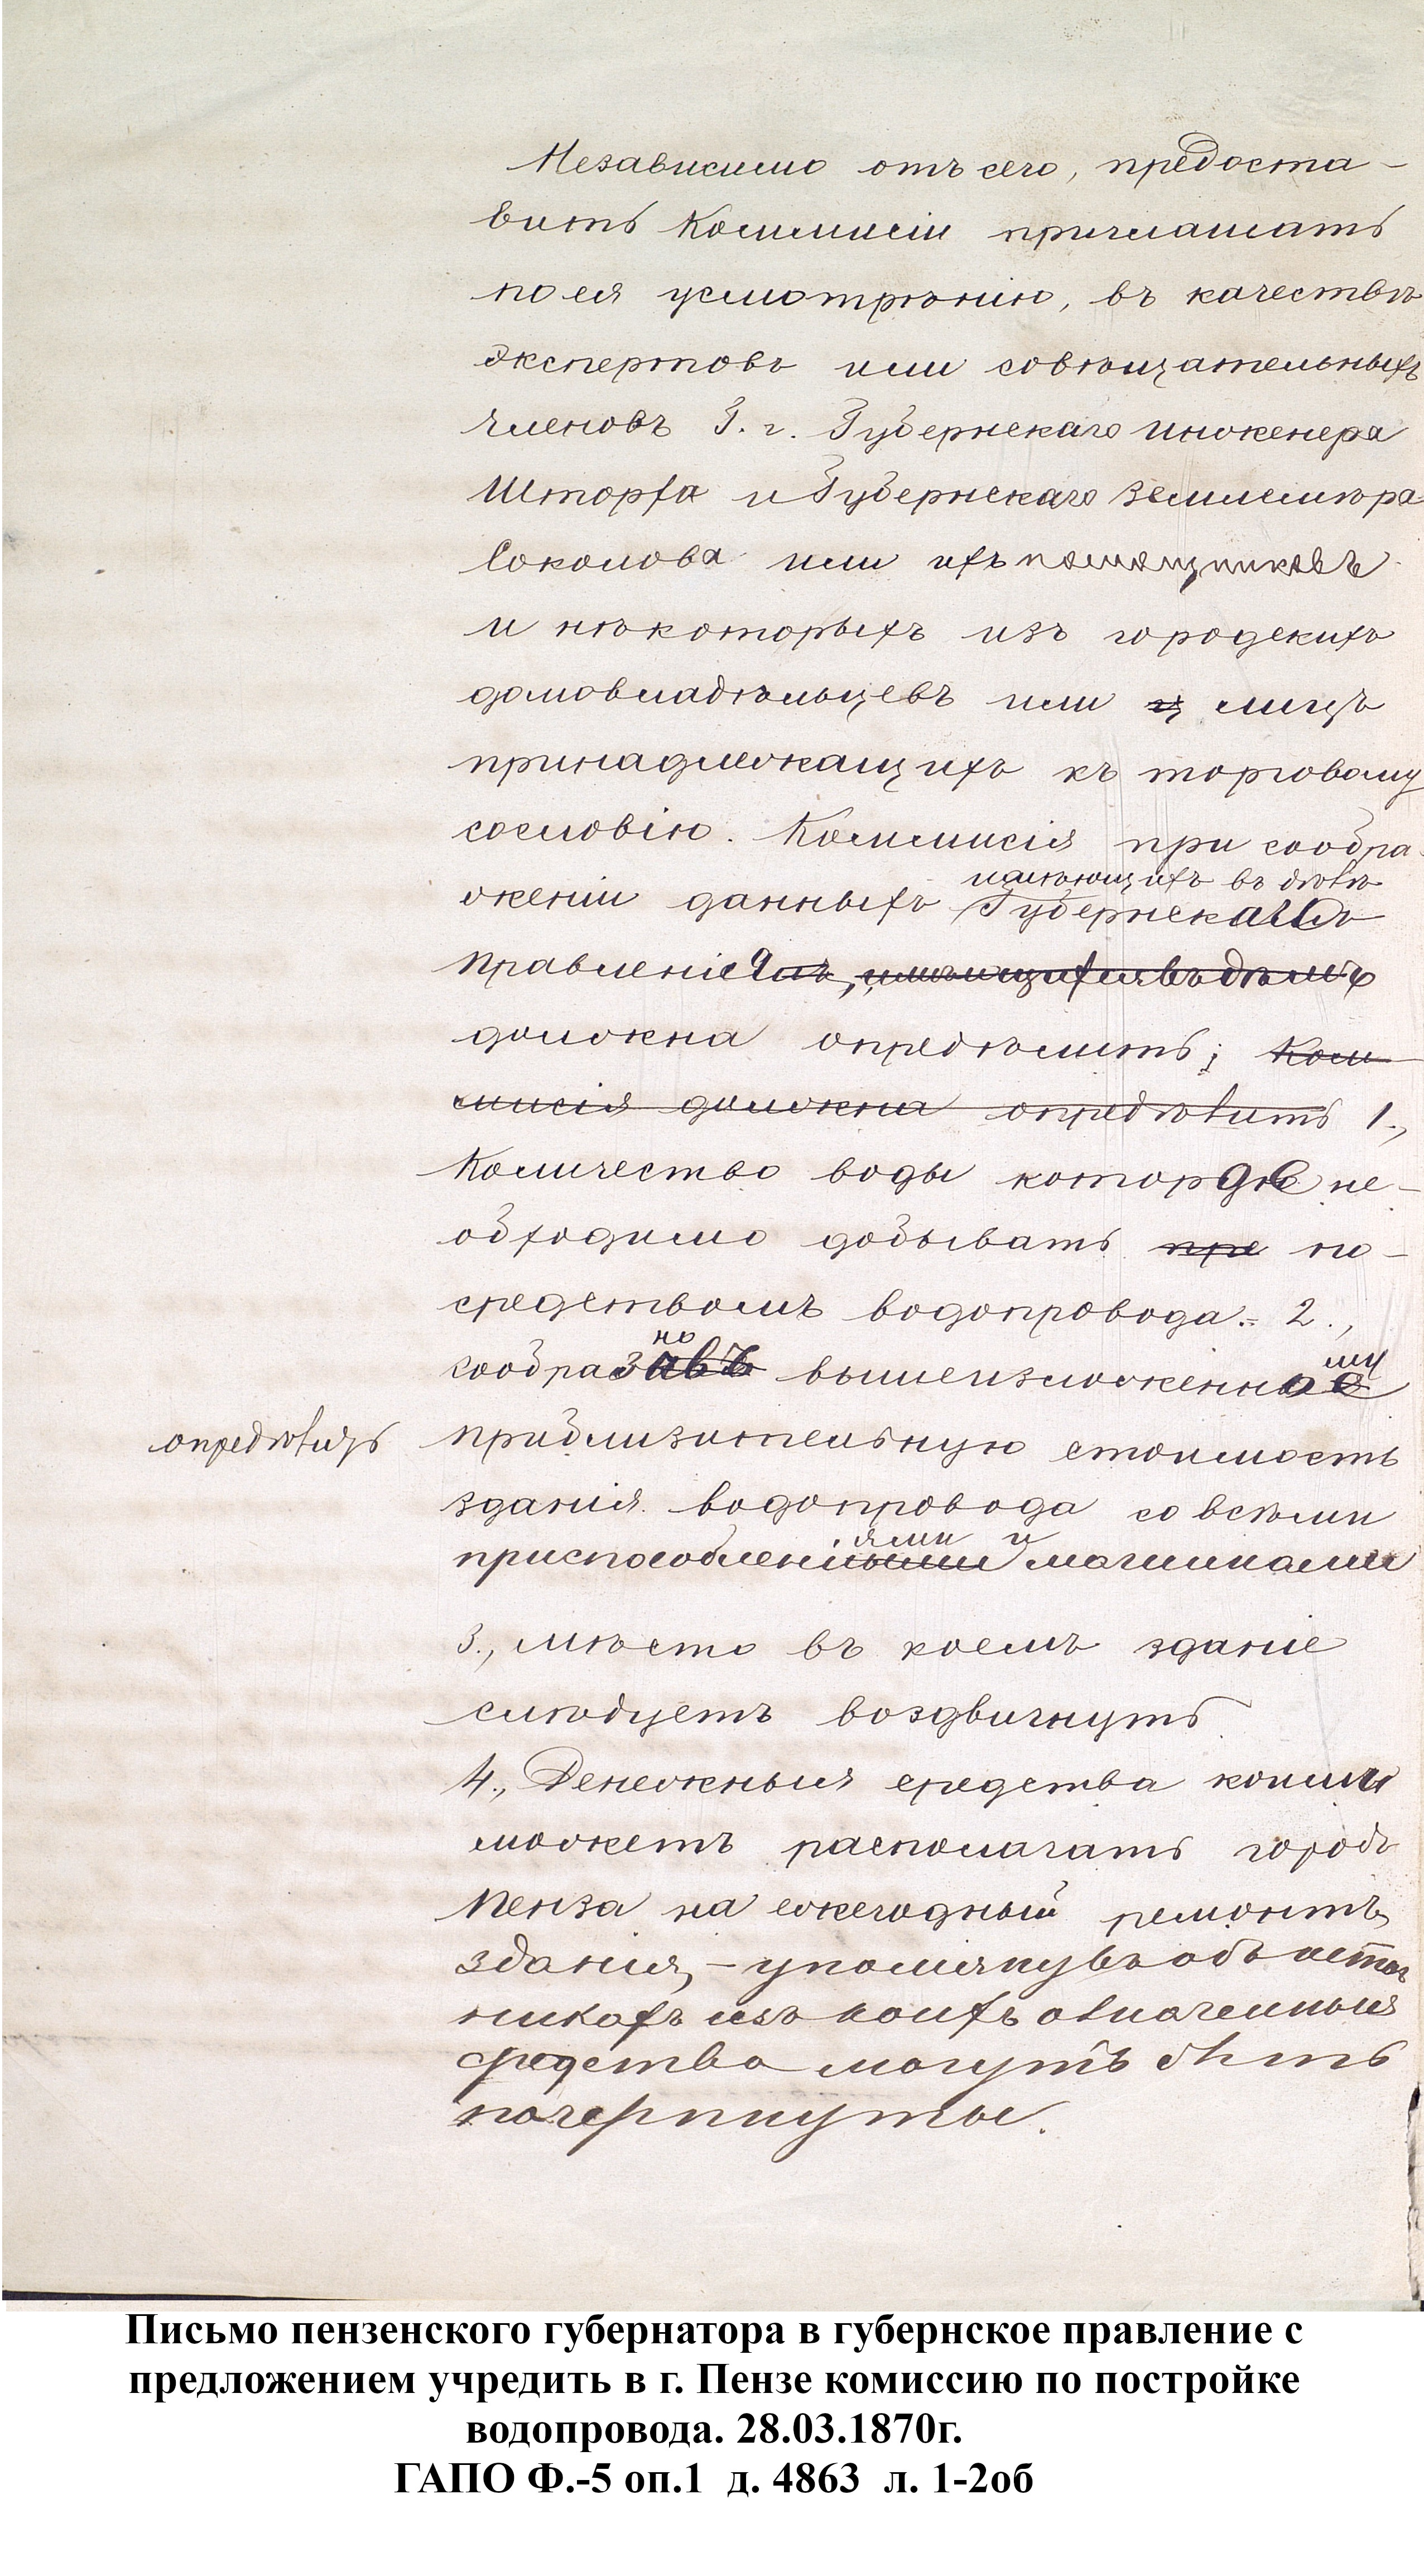 Независимо отъ сего, предоста-
вить Коммисіи приглашать
по ея усмотрѣнію, въ качествѣ
экспертовъ или совѣщательныхъ
членовъ Г. г. Губернскаго инженера
Шторха и Губернскаго землемѣра
Соколова или ихъ помощниковъ
и нѣкоторыхъ изъ городскихъ
домовладѣльцевъ или лицъ
принадлежащихъ къ торговому
сословію. Коммисія при сообра-
имѣющихъ въ дѣлѣ
женіи данныхъ Губернскаго
Правленія, имѣющихся въ дѣлѣ
должна опредѣлить; Ком-
мисія должна опредѣлить 1.,
Количество воды которое не-
обходимо добывать пре по-
средствомъ водопровода. 2.,
но му
сообразавъ вышеизложенное
опредѣлить
приблизительную стоимость
зданія водопровода со всѣми
ями и
приспособленіями машинами
3., мѣсто въ коемъ зданіе
слѣдуетъ воздвигнуть
4., Денежныя средства коими
можетъ располагать городъ
Пенза на ежегодный ремонтъ
зданія, - упомянувъ объ источ
никахъ изъ коихъ означенныя
средства могутъ быть
почерпнуты.
Письмо пензенского губернатора в губернское правление с
предложением учредить в г. Пензе комиссию по постройке
водопровода. 28.03.1870г.
ГАПО Ф.-5 оп.1 д. 4863 л. 1-2об